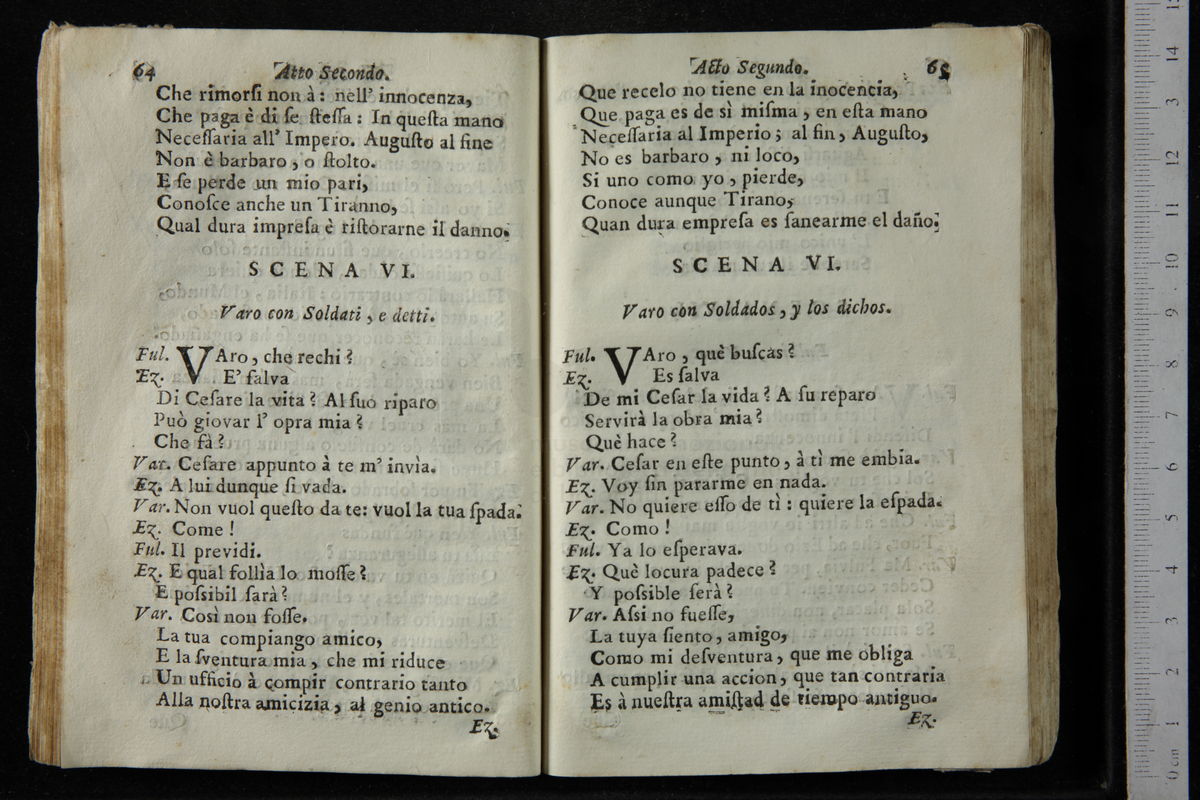 64
Atto Secondo.
Che rimorſi non à: nell' innocenza,
Che paga è di ſe ſteſſa: In queſta mano
Neceſſaria all' Impero. Auguſto al fine
Non è barbaro, o ſtolto.
E ſe perde un mio pari,
Conoſce anche un Tiranno,
Qual dura impreſa è riſtorarne il danno.
SCENA VI.
Varo con Soldati, e detti.
Ful. VAro, che rechi?
Ez. E' ſalva
Di Ceſare la vita? Al ſuo riparo
Può giovar l' opra mia?
Che fà?
Var. Ceſare appunto à te m' invìa.
Ez. A lui dunque ſi vada.
Var. Non vuol queſto da te: vuol la tua ſpada.
Ez. Come!
Ful. Il previdi.
Ez. E qual follìa lo moſſe?
E poſsibil ſarà?
Var. Così non foſſe.
La tua compiango amico,
E la ſventura mia, che mi riduce
Un ufficio à compir contrario tanto
Alla noſtra amicizia, al genio antico.
Ez.
Acto Segundo.
65
Que recelo no tiene en la inocencia,
Que paga es de sì miſma, en eſta mano
Neceſſaria al Imperio; al fin, Auguſto,
No es barbaro, ni loco,
Si uno como yo, pierde,
Conoce aunque Tirano,
Quan dura empreſa es ſanearme el daño.
SCENA VI.
Varo con Soldados, y los dichos.
Ful. VAro, què buſcas?
Ez. Es ſalva
De mi Ceſar la vida? A ſu reparo
Servirà la obra mia?
Què hace?
Var. Ceſar en eſte punto, à tì me embia.
Ez. Voy ſin pararme en nada.
Var. No quiere eſſo de tì: quiere la eſpada.
Ez. Como!
Ful. Ya lo eſperava.
Ez. Què locura padece?
Y poſsible ſerà?
Var. Aſsi no fueſſe,
La tuya ſiento, amigo,
Como mi deſventura, que me obliga
A cumplir una accion, que tan contraria
Es à nueſtra amiſtad de tiempo antiguo.
Ez.